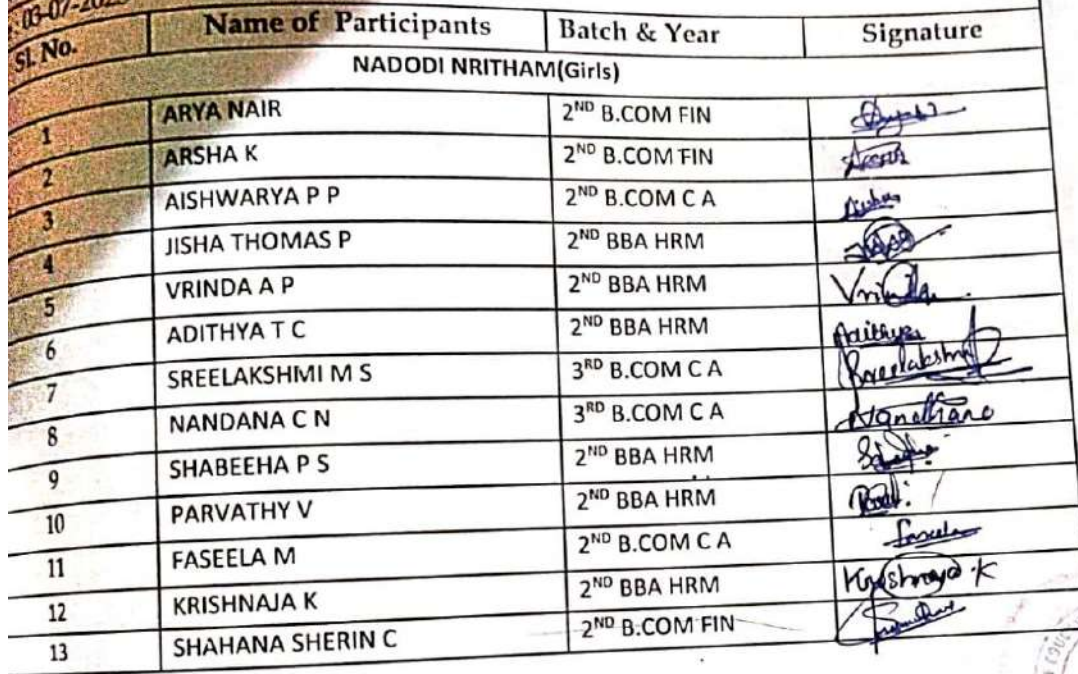 03-07-202
Sl. No. Name of Participants Batch & Year Signature
NADODI NRITHAM(Girls)
1 ARYA NAIR 2ND B.COM FIN
2 ARSHA K 2ND B.COM FIN Arsha
3 AISHWARYA P P 2ND B.COM C A
4 JISHA THOMAS P 2ND BBA HRM
5 VRINDA A P 2ND BBA HRM Vrinda
6 ADITHYA T C 2ND BBA HRM Adithya
7 SREELAKSHMI M S 3RD B.COM C A Sreelakshmi
8 NANDANA C N 3RD B.COM C A Nandhana
9 SHABEEHA P S 2ND BBA HRM
10 PARVATHY V 2ND BBA HRM
11 FASEELA M 2ND B.COM C A Faseela
12 KRISHNAJA K 2ND BBA HRM Krishnaja K
13 SHAHANA SHERIN C 2ND B.COM FIN